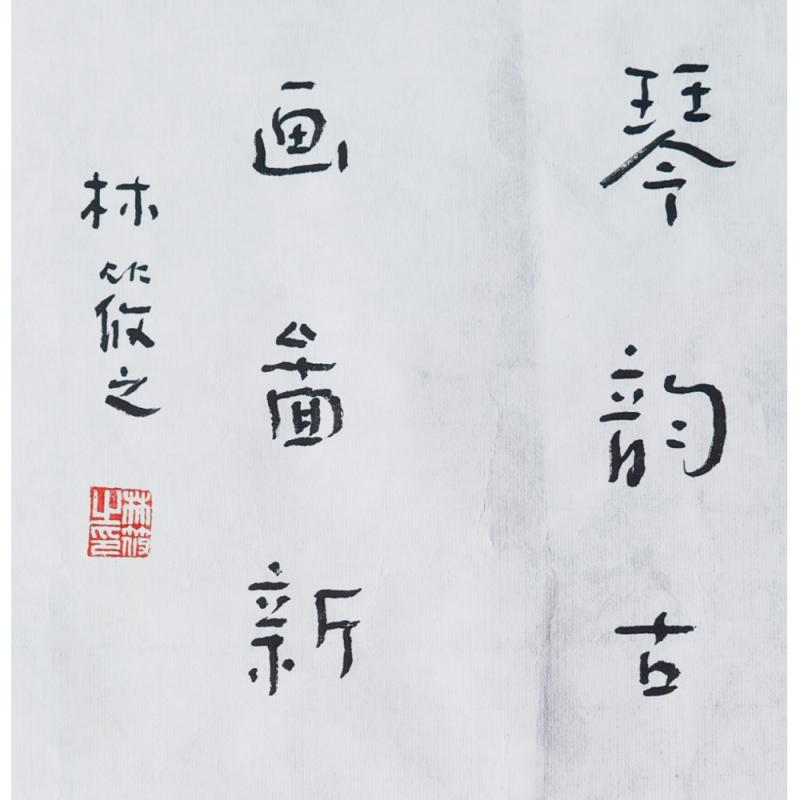 琴韵古
画啚新
林筱之
林筱之印